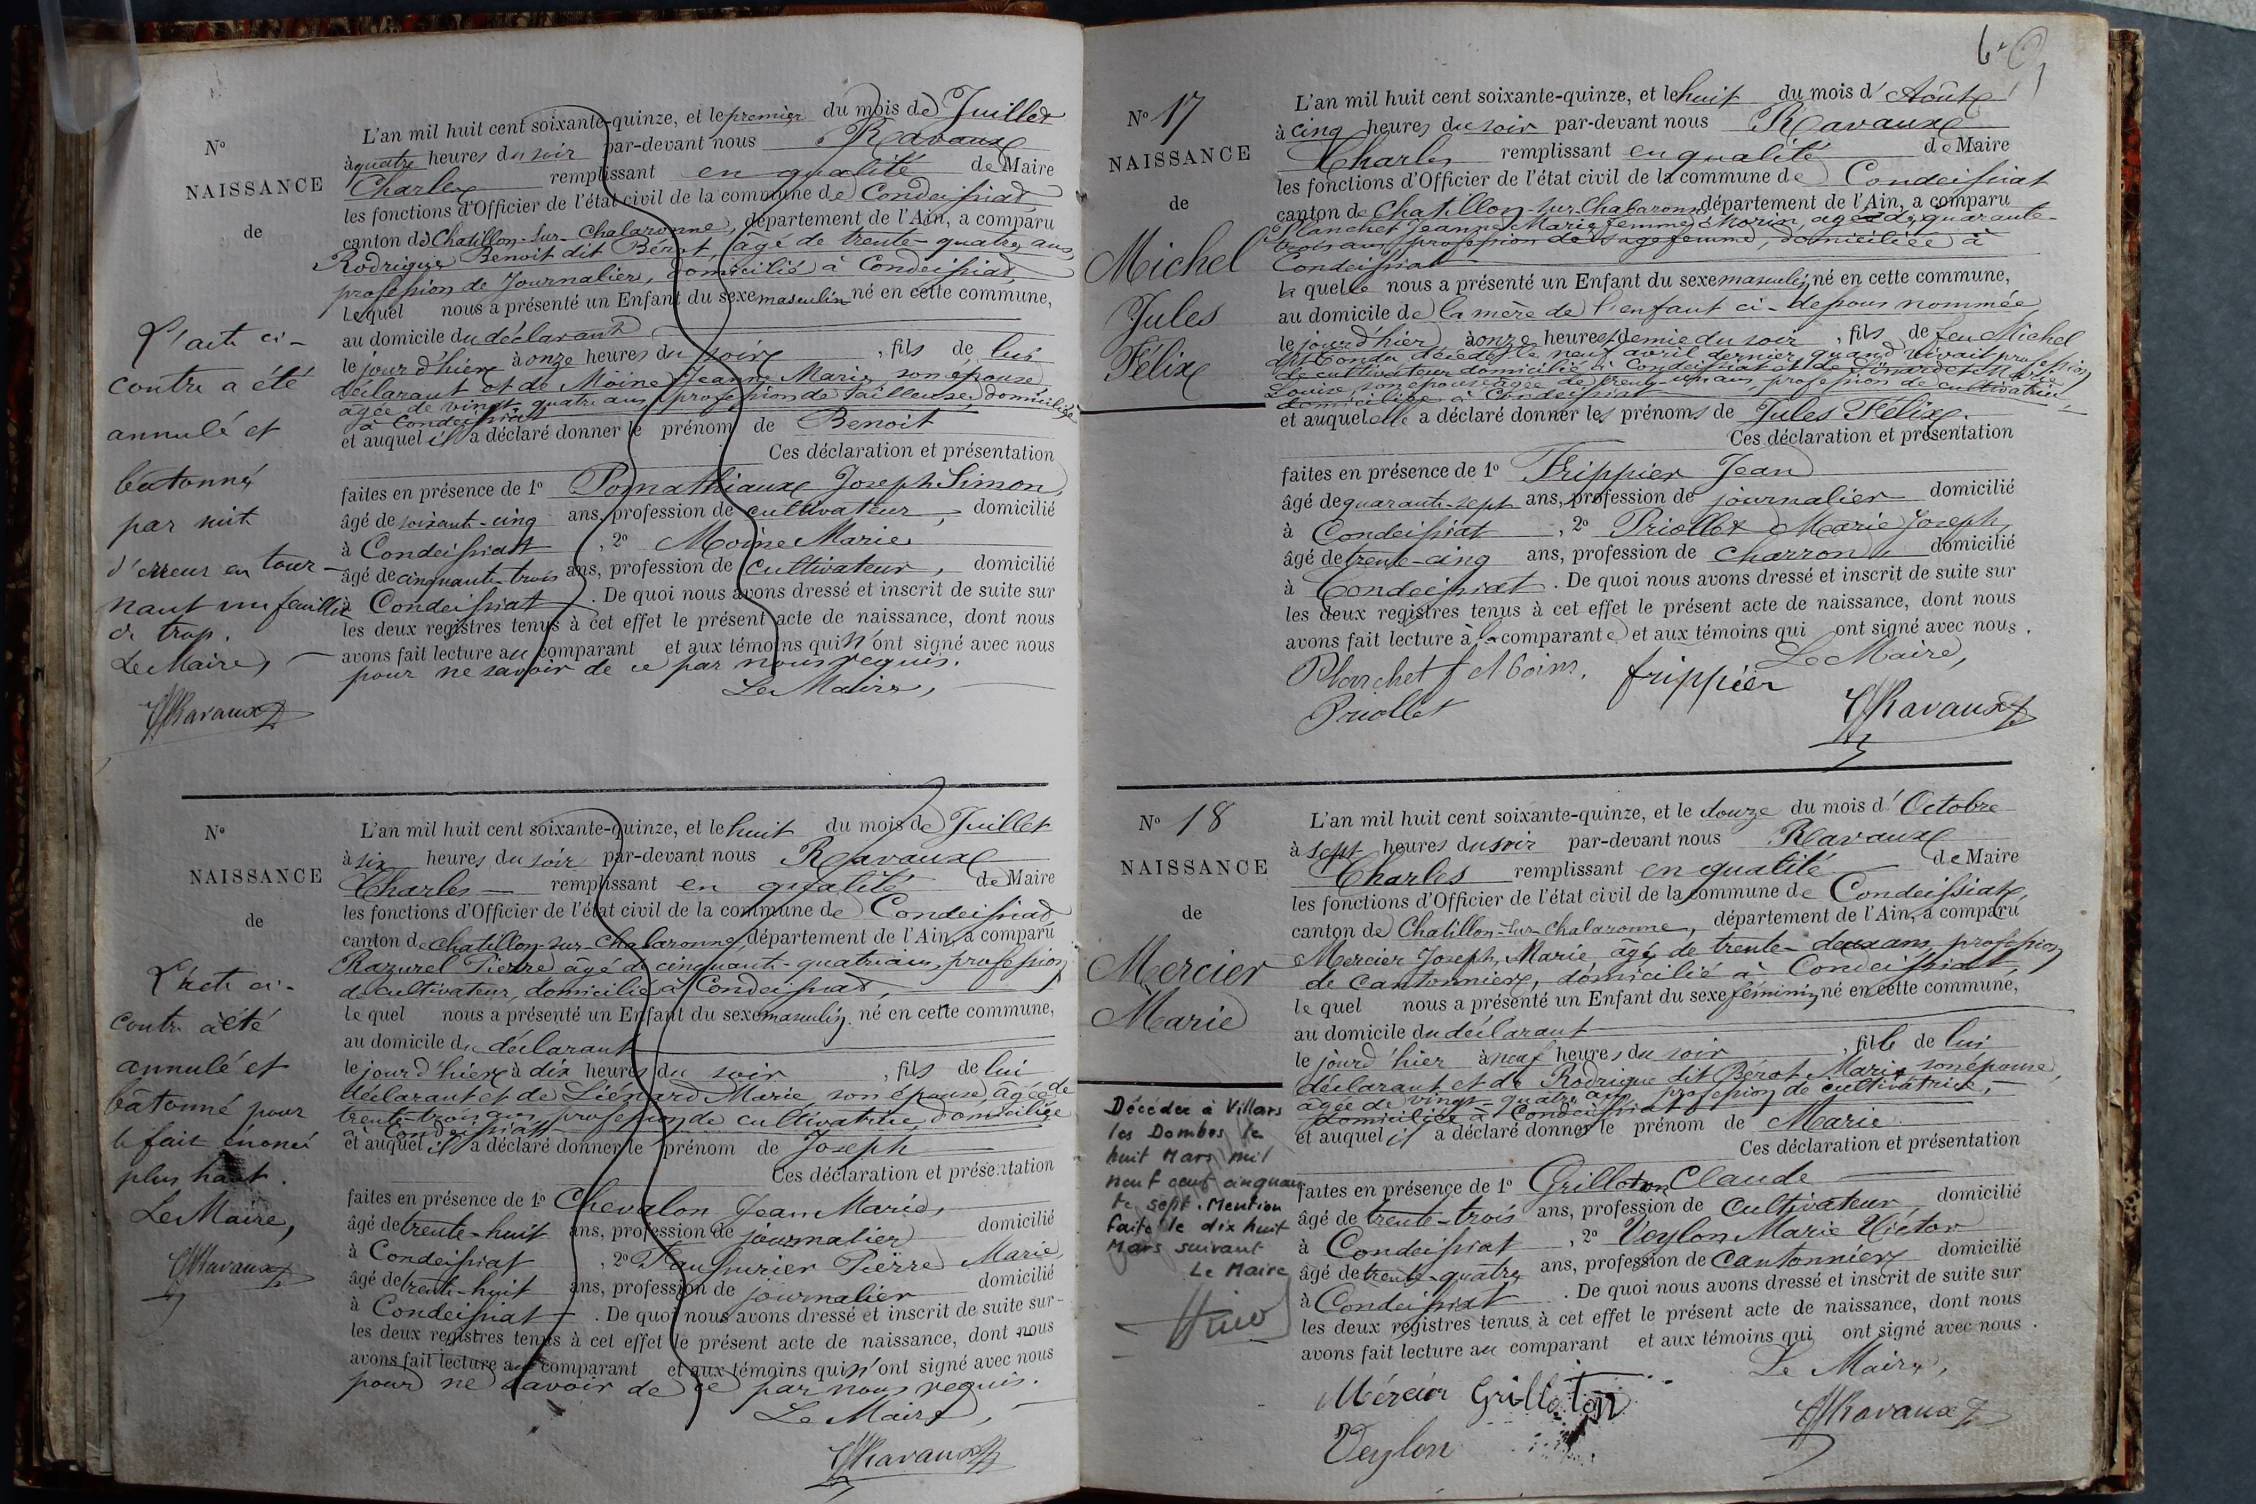 N°
NAISSANCE
de
L'acte ci-
contre a été
annulé et
batonné
par suite
d'erreur en tour-
nant un feuillet
de trop.
Le Maire,
Ravaux
L'an mil huit cent soixante-quinze, et le premier du mois de Juillet
à quatre heures du soir par-devant nous Ravaux
Charles remplissant en qualité de Maire
les fonctions d'Officier de l'état civil de la commune de Condeissiat
canton de Chatillon-sur-Chalaronne, département de l'Ain, a comparu
Rodrigue Benoit dit Bérot, âgé de trente-quatre ans,
profession de Journalier, domicilié à Condeissiat,
Lequel nous a présenté un Enfant du sexe masculin né en cette commune,
au domicile du déclarant
le jour d'hier à onze heures du soir, fils de lui
déclarant et de Moine Jeanne Marie son épouse,
âgée de vingt quatre ans, profession de Tailleuse, domiciliée
à Condeissiat
et auquel il a déclaré donner le prénom de Benoit
Ces déclaration et présentation
faites en présence de 1° Pomathiaux Joseph Simon,
âgé de soixante-cinq ans, profession de cultivateur, domicilié
à Condeissiat, 2° Moine Marie
âgé de cinquante-trois ans, profession de cultivateur, domicilié
à Condeissiat. De quoi nous avons dressé et inscrit de suite sur
les deux registres tenus à cet effet le présent acte de naissance, dont nous
avons fait lecture au comparant et aux témoins qui n'ont signé avec nous
pour ne savoir de ce par nous requis.
Le Maire,
N°
NAISSANCE
de
L'acte ci-
contre a été
annulé et
bâtonné pour
le fait énoncé
plus haut.
Le Maire,
Ravaux
L'an mil huit cent soixante-quinze, et le huit du mois de Juillet
à six heures du soir par-devant nous Ravaux
Charles remplissant en qualité de Maire
les fonctions d'Officier de l'état civil de la commune de Condeissiat
canton de Chatillon-sur-Chalaronne, département de l'Ain, a comparu
Razurel Pierre âgé de cinquante-quatre ans, profession
de cultivateur, domicilié à Condeissiat,
le quel nous a présenté un Enfant du sexe masculin né en cette commune,
au domicile du déclarant
le jour d'hier à dix heures du soir, fils de lui
déclarant et de Liénard Marie, son épouse, âgée de
trente-trois ans, profession de cultivatrice, domiciliée
à Condeissiat
et auquel il a déclaré donner le prénom de Joseph
Ces déclaration et présentation
faites en présence de 1° Chevalon Jean Marie,
âgé de trente-huit ans, profession de journalier domicilié
à Condeissiat, 2° Faussurier Pierre Marie
âgé de trente-huit ans, profession de journalier domicilié
à Condeissiat. De quoi nous avons dressé et inscrit de suite sur
les deux registres tenus à cet effet le présent acte de naissance, dont nous
avons fait lecture au comparant et aux témoins qui n'ont signé avec nous
pour ne savoir de ce par nous requis.
Le Maire,
Ravaux
6e
N° 17
NAISSANCE
de
Michel
Jules
Félix
L'an mil huit cent soixante-quinze, et le huit du mois d'Août
à cinq heures du soir par-devant nous Ravaux
Charles remplissant en qualité de Maire
les fonctions d'Officier de l'état civil de la commune de Condeissiat
canton de Chatillon-sur-Chalaronne, département de l'Ain, a comparu
Planchet Jeanne Marie femme Morin, âgée de quarante-
trois ans, profession de sage femme, domiciliée à
Condeissiat
la quelle nous a présenté un Enfant du sexe masculin, né en cette commune,
au domicile de la mère de l'enfant ci-dessous nommée
le jour d'hier, à onze heures et demie du soir, fils de feu Michel
décédé le neuf avril dernier, quand vivait profession
de cultivateur domicilié à Condeissiat et de
Louise, son épouse âgée de trente-un ans, profession de cultivatrice,
domiciliée à Condeissiat
et auquel elle a déclaré donner les prénoms de Jules Félix.
Ces déclaration et présentation
faites en présence de 1° Frippier Jean
âgé de quarante-sept ans, profession de journalier domicilié
à Condeissiat, 2° Priollet Marie Joseph,
âgé de trente-cinq ans, profession de charron, domicilié
à Condeissiat. De quoi nous avons dressé et inscrit de suite sur
les deux registres tenus à cet effet le présent acte de naissance, dont nous
avons fait lecture à la comparante et aux témoins qui ont signé avec nous.
Le Maire,
Planchet f Moirin. frippier
Priollet Ravaux
N° 18
NAISSANCE
de
Mercier
Marie
Décédée à Villars
les Dombes le
huit Mars mil
neuf cent cinquan
te sept. Mention
faite le dix huit
Mars suivant
Le Maire
L'an mil huit cent soixante-quinze, et le douze du mois d'Octobre
à sept heures du soir par-devant nous Ravaux
Charles remplissant en qualité de Maire
les fonctions d'Officier de l'état civil de la commune de Condeissiat,
canton de Chatillon-sur-Chalaronne, département de l'Ain, a comparu
Mercier Joseph, Marie âgé de trente-deux ans, profession
de cantonnier, domicilié à Condeissiat,
le quel nous a présenté un Enfant du sexe féminin, né en cette commune,
au domicile du déclarant
le jour d'hier à neuf heures du soir, fille de lui
déclarant et de Rodrigue dit Bérot Marie son épouse,
âgée de vingt-quatre ans, profession de cultivatrice,
domiciliée à Condeissiat
et auquel il a déclaré donner le prénom de Marie
Ces déclaration et présentation
faites en présence de 1° Grilloton Claude
âgé de trente-trois ans, profession de Cultivateur, domicilié
à Condeissiat, 2° Veylon Marie Victor
âgé de trente-quatre ans, profession de Cantonnier domicilié
à Condeissiat. De quoi nous avons dressé et inscrit de suite sur
les deux registres tenus à cet effet le présent acte de naissance, dont nous
avons fait lecture au comparant et aux témoins qui ont signé avec nous.
Le Maire,
Mércier Grilloton
Veylon Ravaux